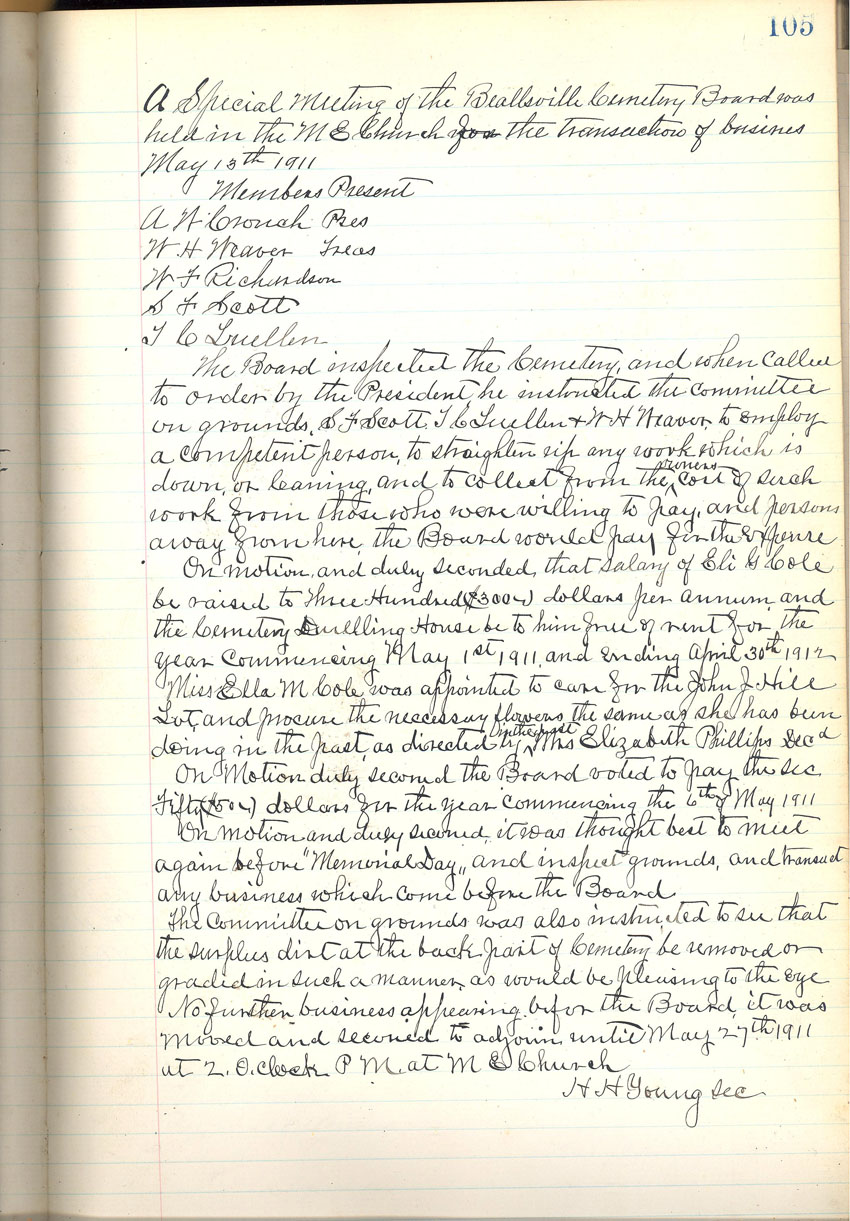 105
A Special Meeting of the Beallsville Cemetery Board was
held in the M E Church for the transaction of busines
May 13th 1911
Members Present
A W Crouch Pres
W H Weaver Treas
W F Richardson
S F Scott
T C Luellen
The Board inspected the Cemetery, and when called
to order by the President, he instructed the committee
on grounds, S F Scott. T C Luellen & W H Weaver, to employ
a competent person, to straighten up any work which is
down, or leaning, and to collect from the owners cost of such
work from those who were willing to pay, and persons
away from here, the Board would pay for the expense
On motion, and duly seconded, that salary of Eli G Cole
be raised to Three Hundred ($300-) dollars per annum, and
the Cemetery Dwellling House be to him free of rent for the
year commencing May 1st 1911, and ending April 30th 1912
Miss Ella M Cole was appointed to care for the John J. Hill
Lot, and procure the neccessary flowers the same as she has been
doing in the past, as directed by in the past Mrs Elizabeth Phillips Decd
On Motion duly second the Board voted to pay the sec
Fifty ($50-) dollars for the year commencing the 6th of May 1911
On motion and duly second, it was thought best to meet
again before "Memorial Day,, and inspect grounds, and transact
any business which come before the Board
The committee on grounds was also instructed to see that
the surplus dirt at the back part of Cemetery be removed or
graded in such a manner, as would be pleasing to the eye
No further business appearing befor the Board, it was
moved and seconed to adjourn until May 27th 1911
at 2. O.clock P M. at M E Church
H H Young sec